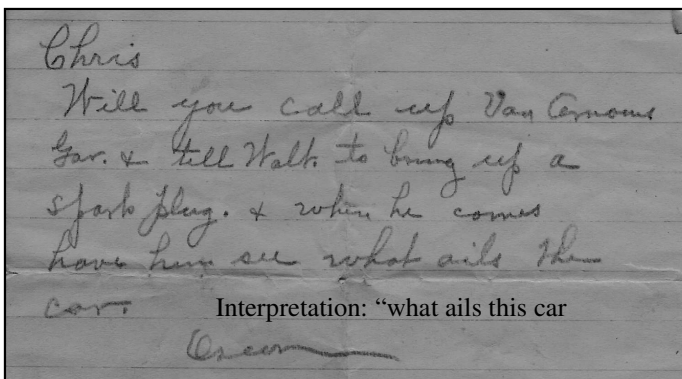 Chris
Will you call up Van Amoums
Gar. & tell Walt. to bring up a
spark plug. & when he comes
have him see what ails the
car. Interpretation: “what ails this car
Oscar